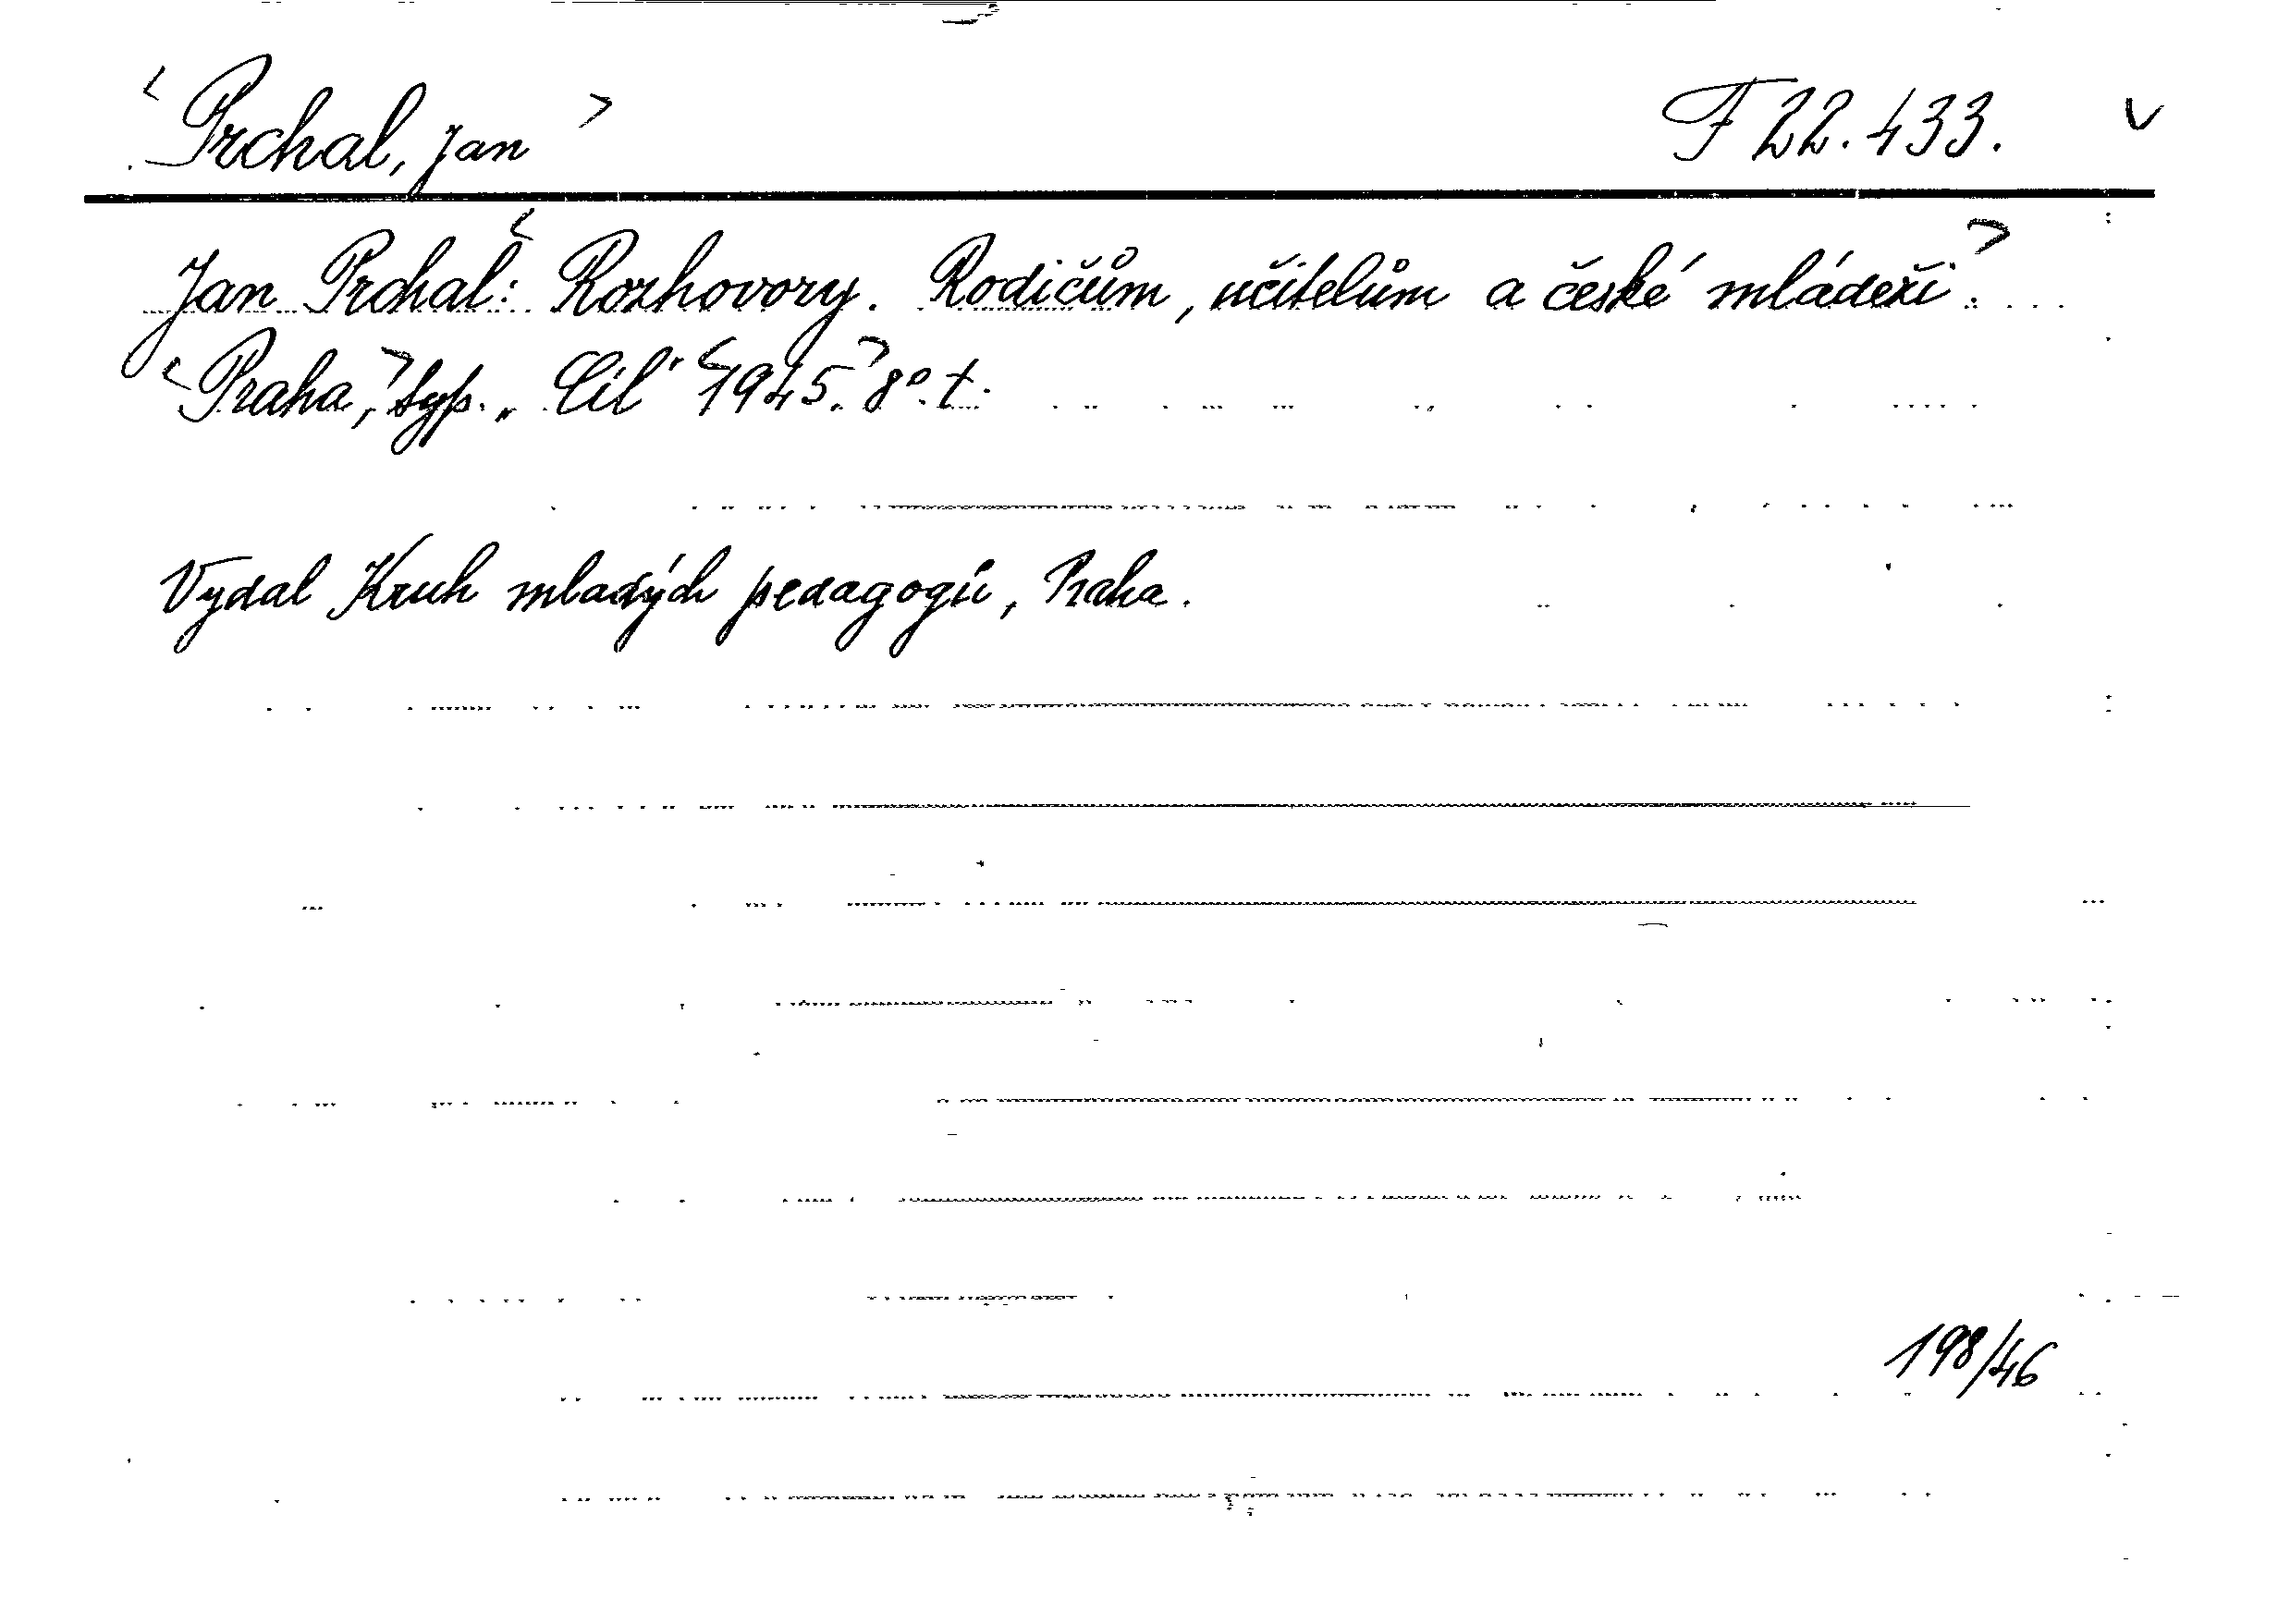 <Prchal, Jan> F 22.433. v
Jan Prchal: <Rozhovory. Rodičům, učitelům a české mládeži.>
<Praha,> typ. „Cíl" <1945.> 8°. t.
Vydal Kruh mladých pedagogů, Praha.
198/46